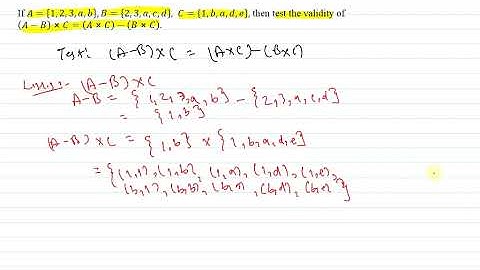 If A = {1, 2, 3, a, b}, B = {2, 3, a, c, d}, C = {1, b, a, d, e}, then test the validity of
(A − B) × C = (A × C) − (B × C).
Test: (A-B)×C = (A×C)-(B×C)
L.H.S:- (A-B)×C
A-B = {1,2,3,a,b} - {2,3,a,c,d}
= {1,b}
(A-B)×C = {1,b} × {1,b,a,d,e}
= {(1,1),(1,b),(1,a),(1,d),(1,e),
(b,1),(b,b),(b,a),(b,d),(b,e)}